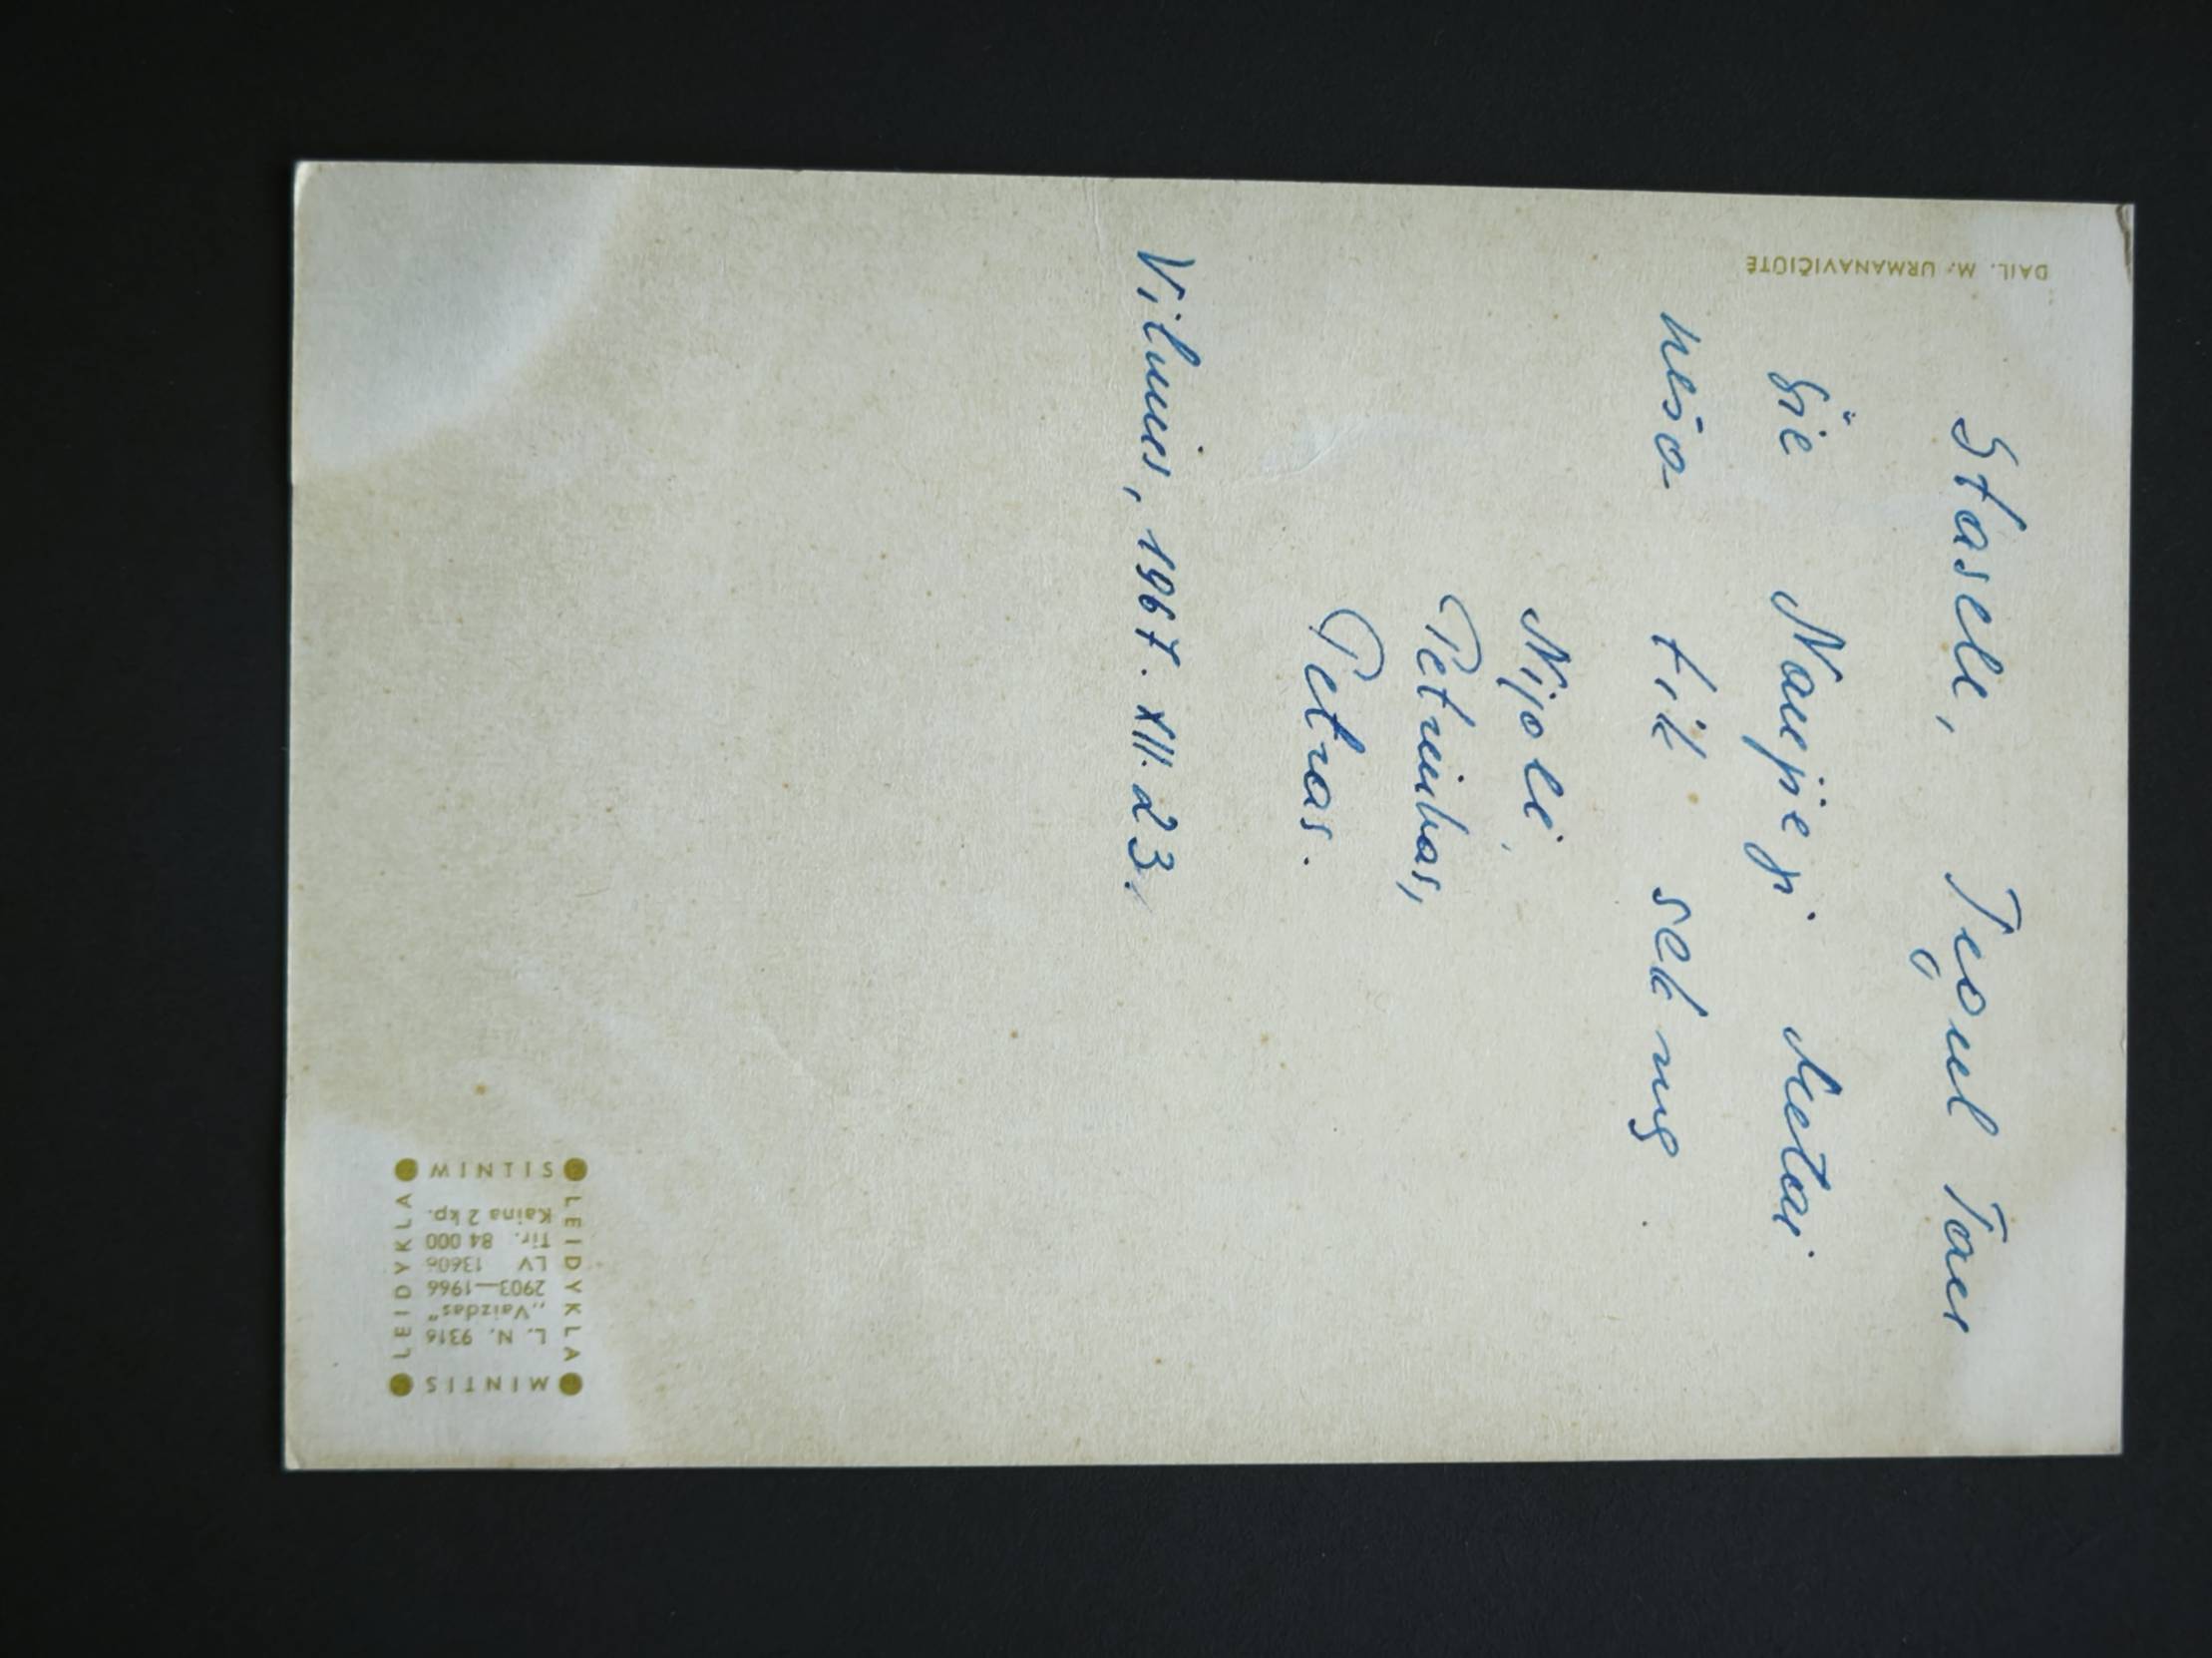 Stasele, Tegul Tau
šie Naujieji Metai
neša tik sėkmę.
Nijolė,
Petriukas,
Petras.
Vilnius, 1967. XII. 23.
DAIL. M. URMANAVIČIŪTĖ
MINTIS
LEIDYKLA
L. N. 9316
„Vaizdas"
2903—1966
LV 13606
Tir. 84 000
Kaina 2 kp.
LEIDYKLA
MINTIS